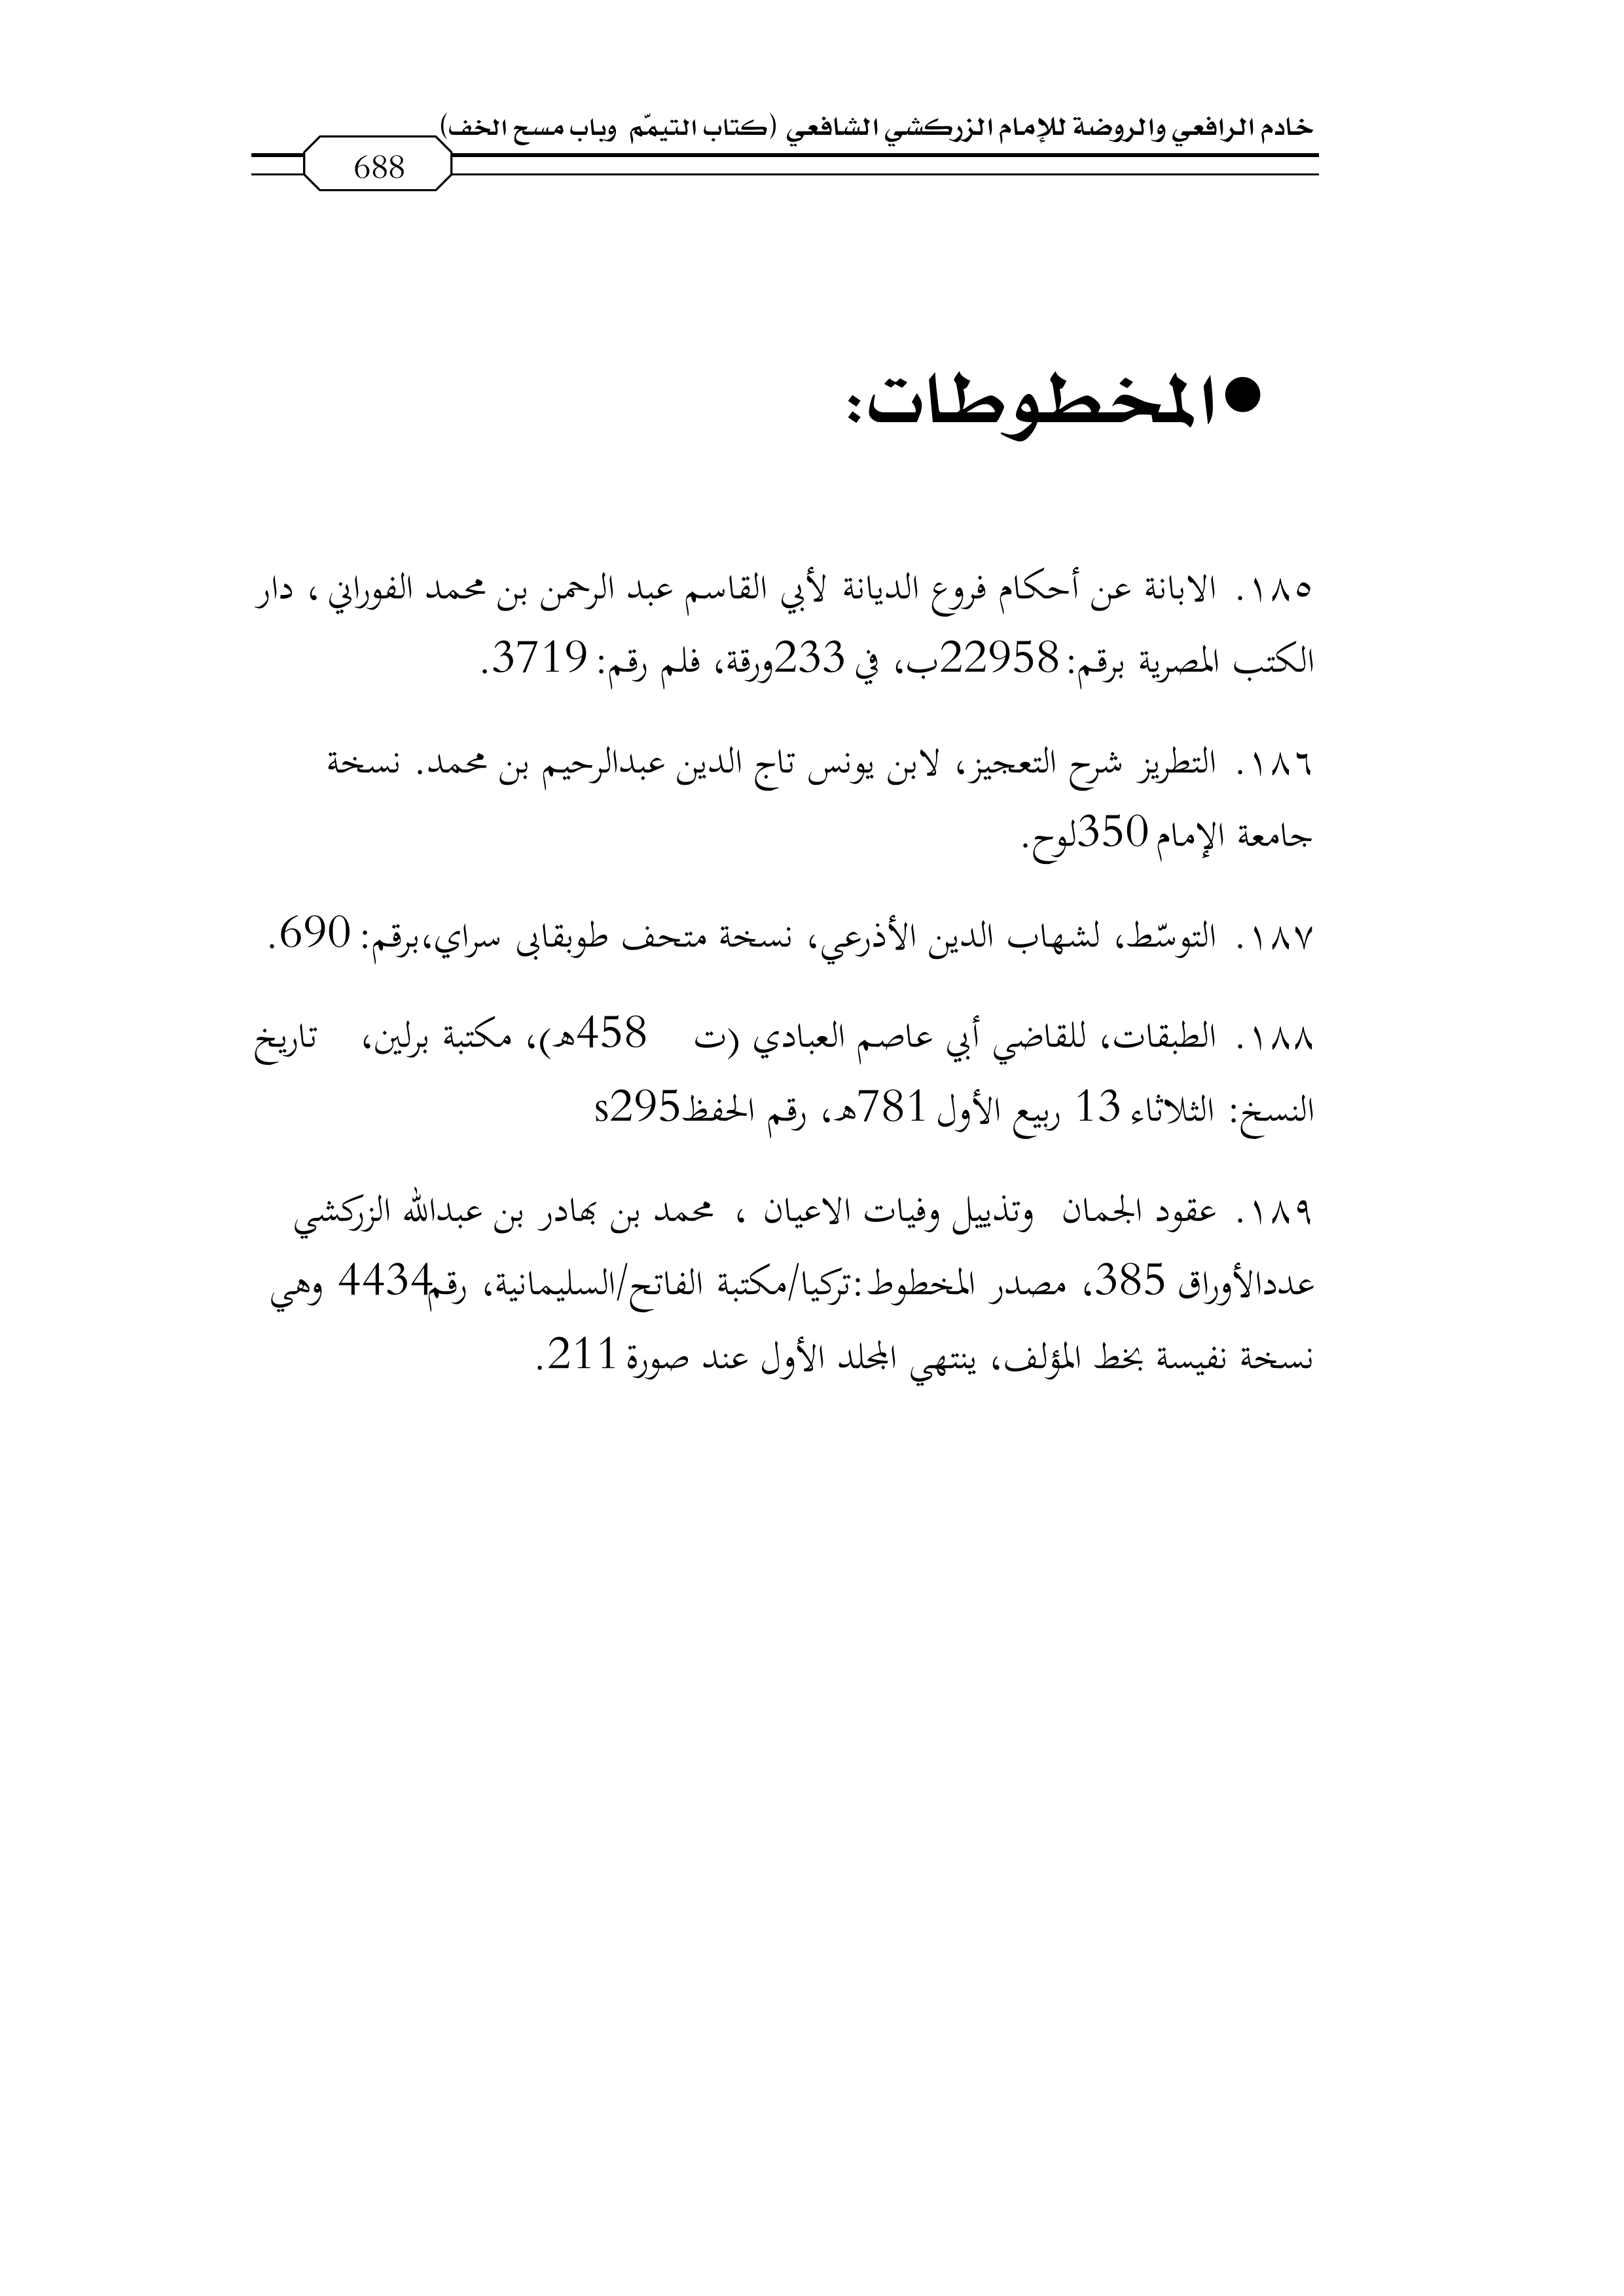 خادم الرافعي والروضة للإمام الزركشي الشافعي (كتاب التيمّم وباب مسح الخف)
688
●المخطوطات:
١٨٥. الابانة عن أحكام فروع الديانة لأبي القاسم عبد الرحمن بن محمد الفوراني ، دار
الكتب المصرية برقم: 22958ب، في 233ورقة، فلم رقم: 3719.
١٨٦. التطريز شرح التعجيز، لابن يونس تاج الدين عبدالرحيم بن محمد. نسخة
جامعة الإمام 350لوح.
١٨٧. التوسّط، لشهاب الدين الأذرعي، نسخة متحف طوبقابى سراي،برقم: 690.
١٨٨. الطبقات، للقاضي أبي عاصم العبادي (ت 458هـ)، مكتبة برلين، تاريخ
النسخ: الثلاثاء 13 ربيع الأول 781هـ، رقم الحفظs295
١٨٩. عقود الجمان وتذييل وفيات الاعيان ، محمد بن بهادر بن عبدالله الزركشي
عددالأوراق 385، مصدر المخطوط:تركيا/مكتبة الفاتح/السليمانية، رقم4434 وهي
نسخة نفيسة بخط المؤلف، ينتهي المجلد الأول عند صورة 211.